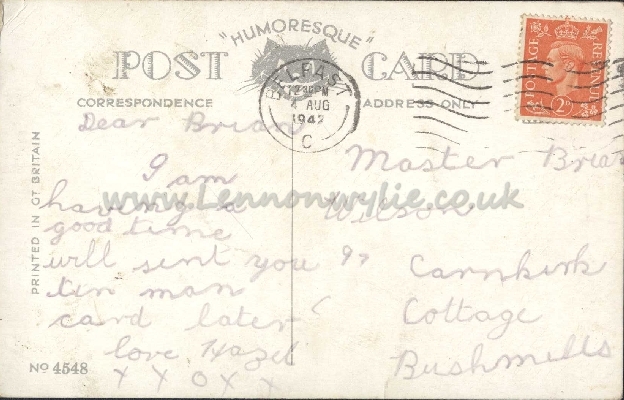 "HUMORESQUE"
POST CARD
CORRESPONDENCE
ADDRESS ONLY
BELFAST
12 30 PM
4 AUG
1942
C
POSTAGE REVENUE
2D
PRINTED IN GT BRITAIN
Dear Brian
I am
having a
good time
will sent you
tin man
card later
love Hazel
X X O X X
Master Brian
Wilson
97
Carnkirk
Cottage
Bushmills
No 4548
www.Lennonwylie.co.uk